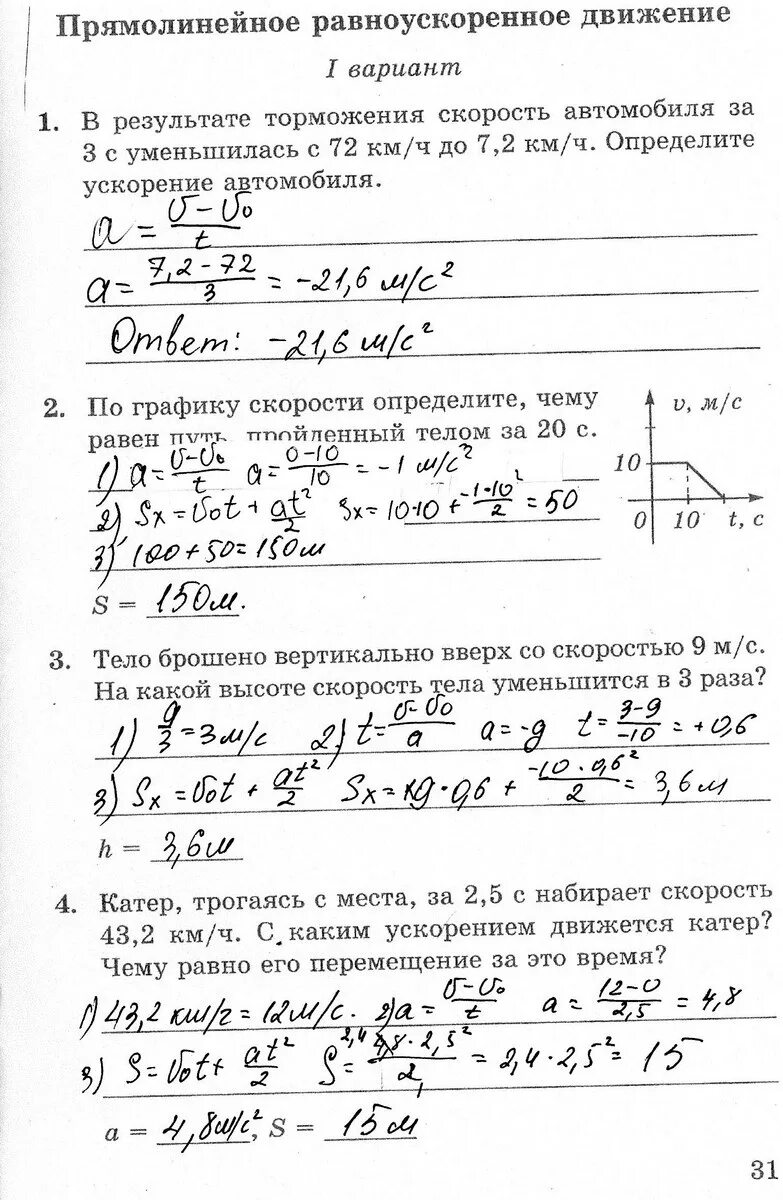 Прямолинейное равноускоренное движение
I вариант
1. В результате торможения скорость автомобиля за
3 с уменьшилась с 72 км/ч до 7,2 км/ч. Определите
ускорение автомобиля.
a = (υ – υ₀)/t
a = (7,2 – 72)/3 = –21,6 м/с²
Ответ: –21,6 м/с²
2. По графику скорости определите, чему
равен путь, пройденный телом за 20 с.
υ, м/с
10
0 10 t, с
1) a = (υ – υ₀)/t a = (0 – 10)/10 = –1 м/с²
2) Sx = υ₀t + at²/2 Sx = 10·10 + (–1·10²)/2 = 50
3) 100 + 50 = 150м
S = 150м.
3. Тело брошено вертикально вверх со скоростью 9 м/с.
На какой высоте скорость тела уменьшится в 3 раза?
1) 9/3 = 3м/с 2) t = (υ – υ₀)/a a = –g t = (3 – 9)/–10 = +0,6
3) Sx = υ₀t + at²/2 Sx = 9·0,6 + (–10·0,6²)/2 = 3,6м
h = 3,6м
4. Катер, трогаясь с места, за 2,5 с набирает скорость
43,2 км/ч. С каким ускорением движется катер?
Чему равно его перемещение за это время?
1) 43,2 км/г = 12м/с. 2) a = (υ – υ₀)/t a = (12 – 0)/2,5 = 4,8
3) S = υ₀t + at²/2 S = 2,4 (4,8·2,5²)/2 = 2,4·2,5² = 15
a = 4,8м/с², S = 15м
31